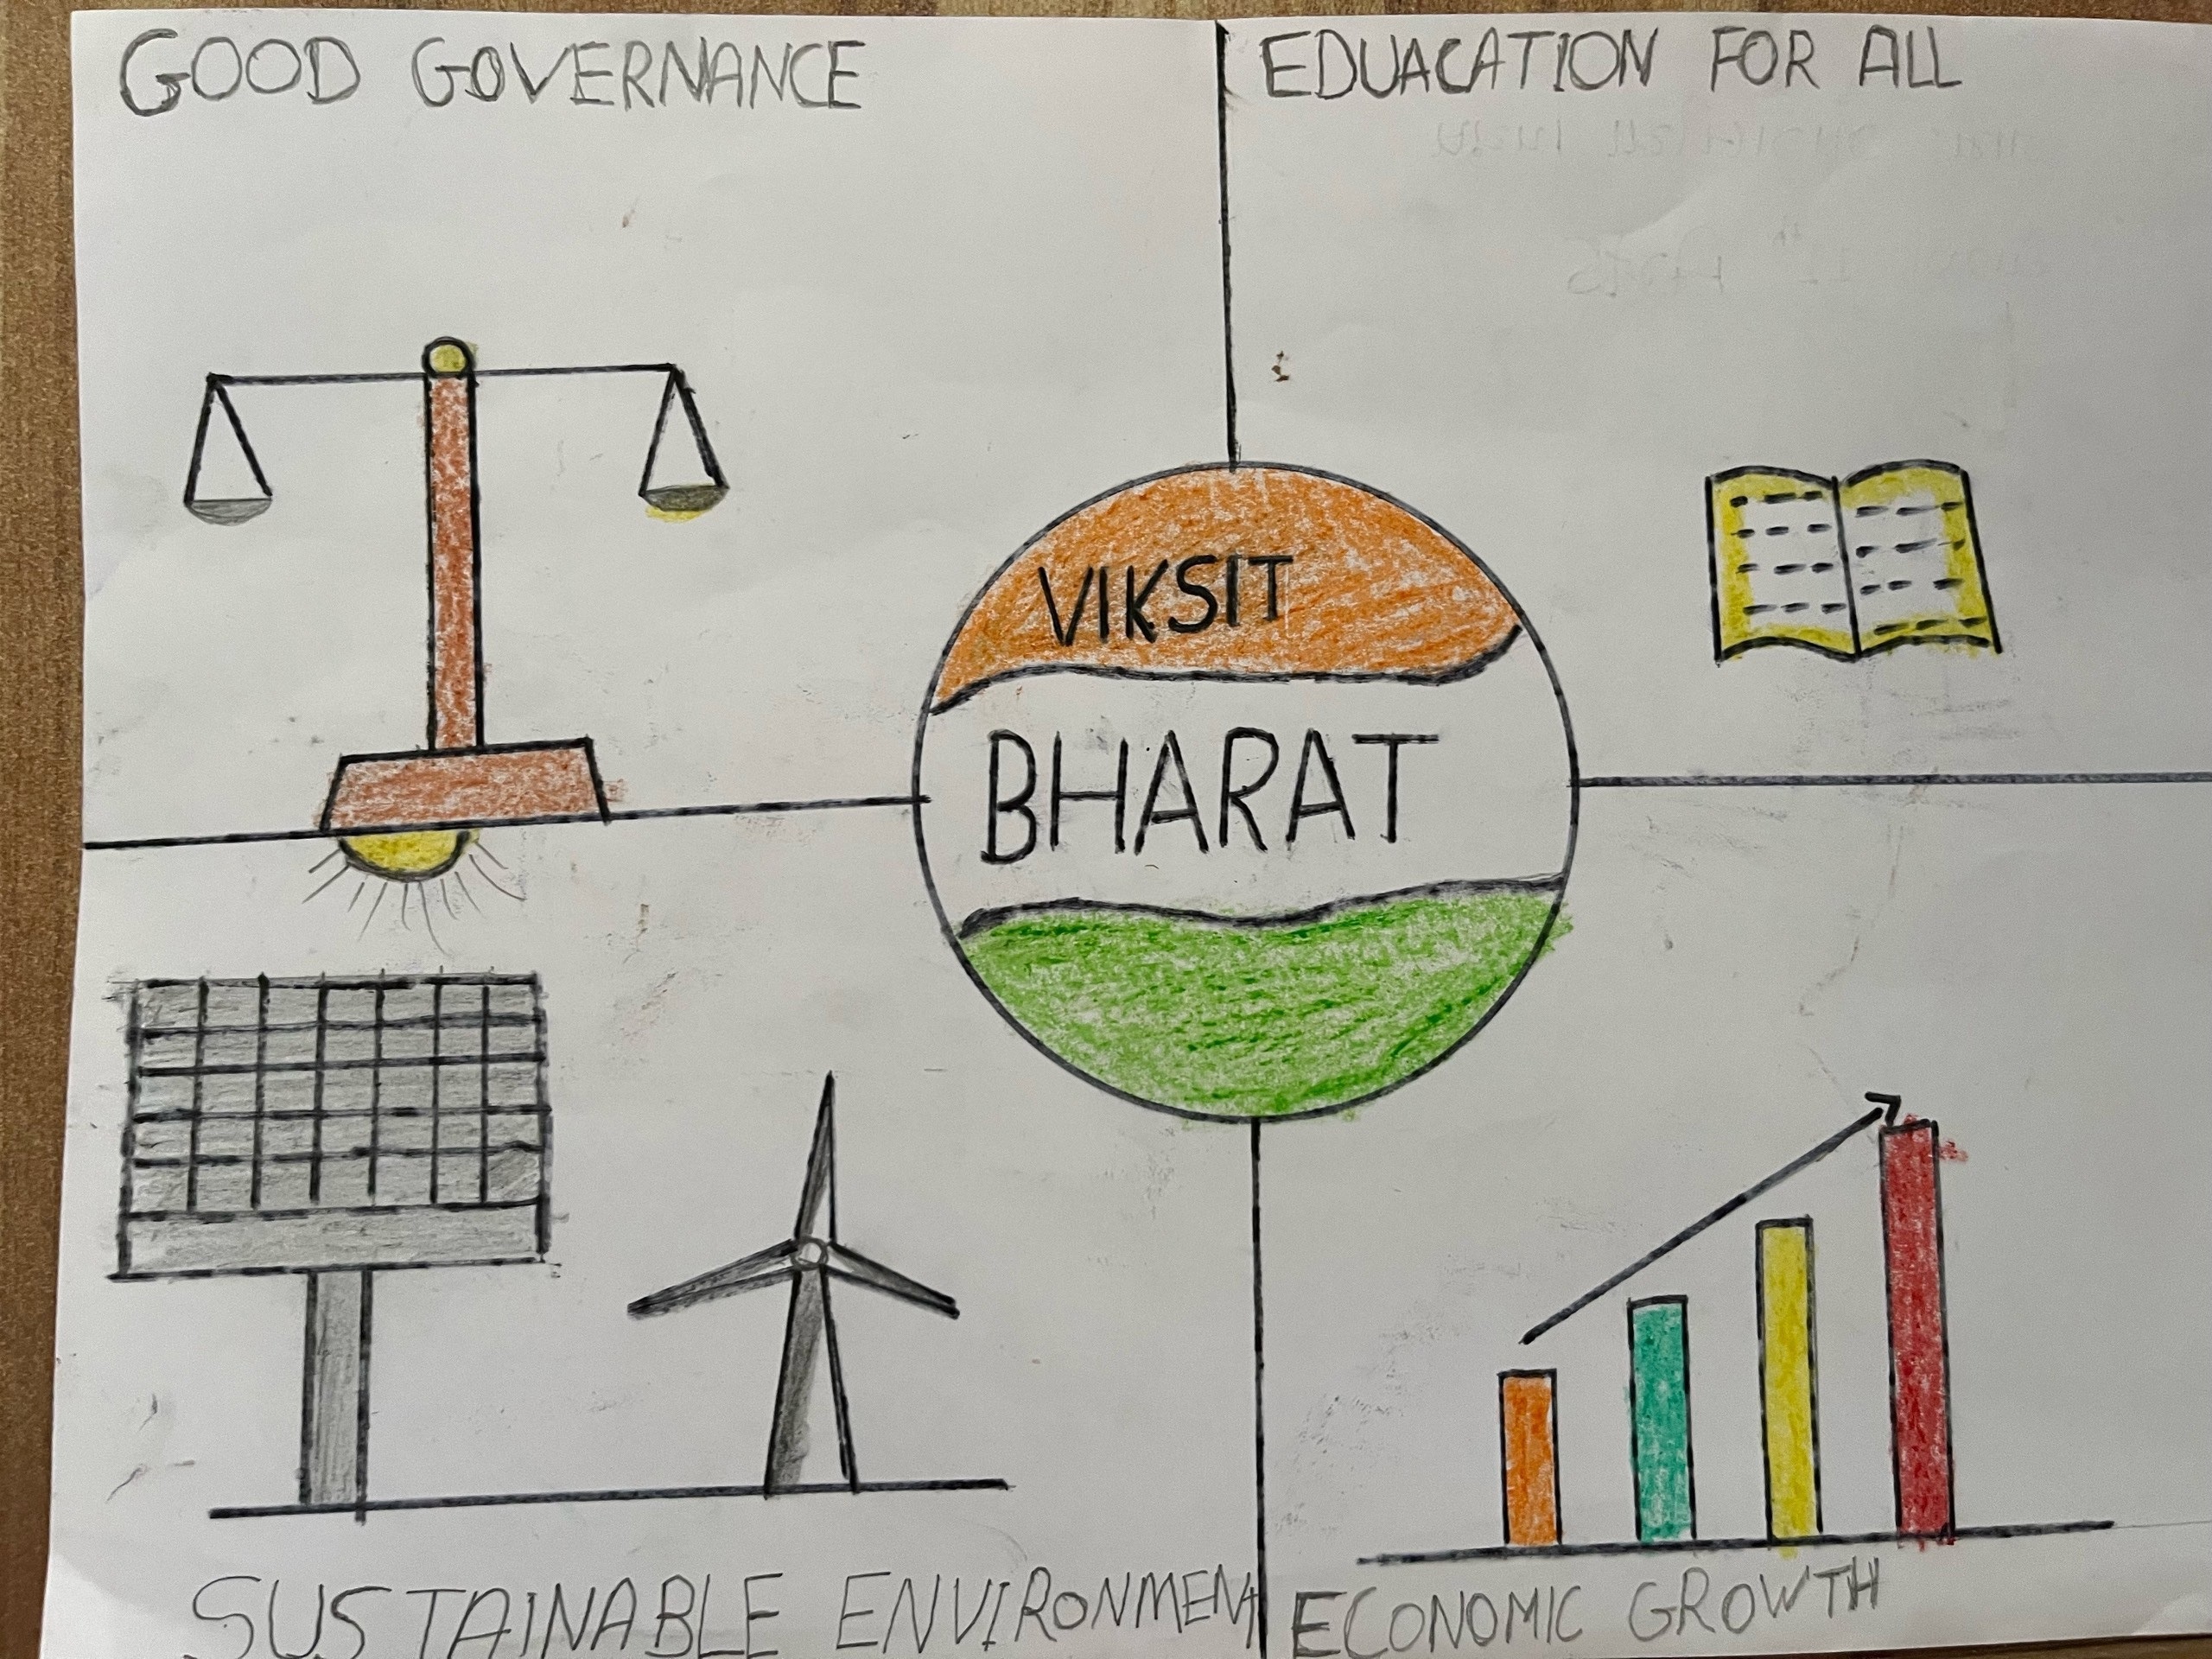 GOOD GOVERNANCE
EDUACATION FOR ALL
VIKSIT
BHARAT
SUSTAINABLE ENVIRONMENT
ECONOMIC GROWTH